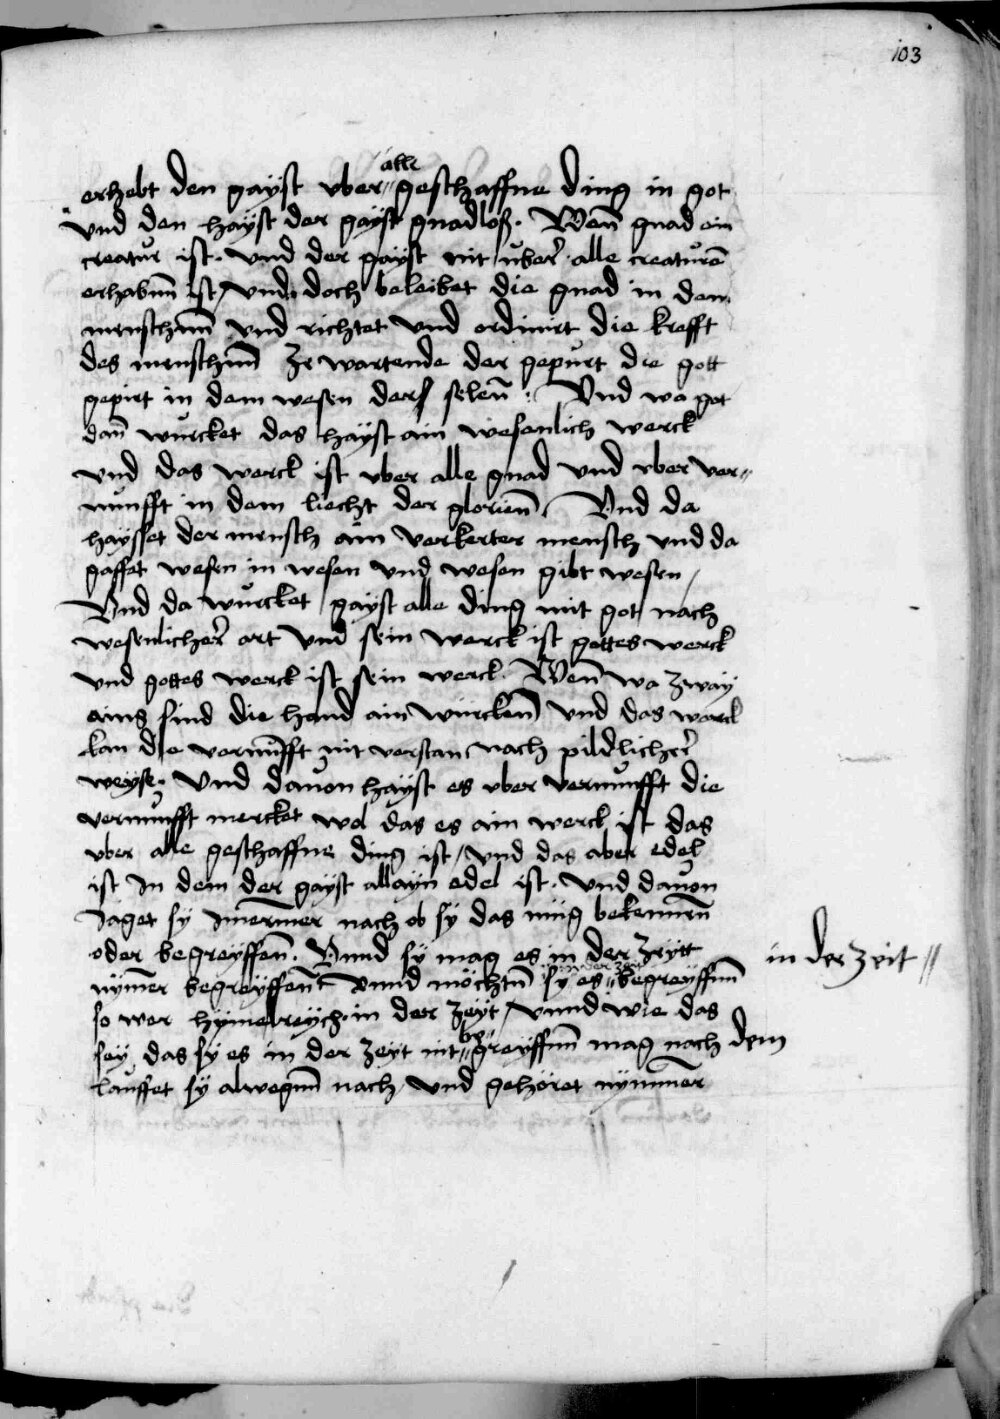 103
alle
erhebt den gayst vber geschaffne ding in got
vnd den hayst der gayst gnadloß. Wenn gnad ein
creatur ist. vnd der gayst nit über alle creaturē
erhabnn ist / vnd doch beleibet die gnad in dem
menschnn vnd richtet vnd ordinirt die krefft
des menschnn ze wartende der gepurt die gott
gepirt in dem wesen der selenn : Vnd wa got
dann würcket das hayst ain wesenlich werck
vnd das werck ist vber alle gnad vnd vber ver〃
nunfft in dem liecht der glorienn / Vnd da
haysset der mensch ain verkerter mensch vnd da
gaffet wesen in wesen vnd wesen gibt wesen /
Vnd da würcket gayst alle ding mit got nach
wesenlicher art vnd sein werck ist gottes werck
vnd gottes werck ist sein werck. Wenn wa zway
ains sind die hand ain würckenn vnd das werck
kan die vernufft nit verstan nach pildlicher
weyse. Vnd dauon hayst es vber vernunfft die
vernunfft mercket wol das es ain werck ist das
vber alle geschaffne ding ist / vnd das aber edel
ist In dem der gayst allayn edel ist. vnd dauon
Jaget sy Jmermer nach ob sy das müg bekennenn
oder begreyffenn. Vnnd sy mag es in der zeytt
nymer begreyffenn Vnnd möchtnn sy es〃begreyffnn in der zeit〃
so wer hymelreych in der zeyt / vnnd wie das
sey das sy es in der zeyt nit〃be〃greyffnn mag nach dem
lauffet sy alwegnn nach vnd gehöret nymmer